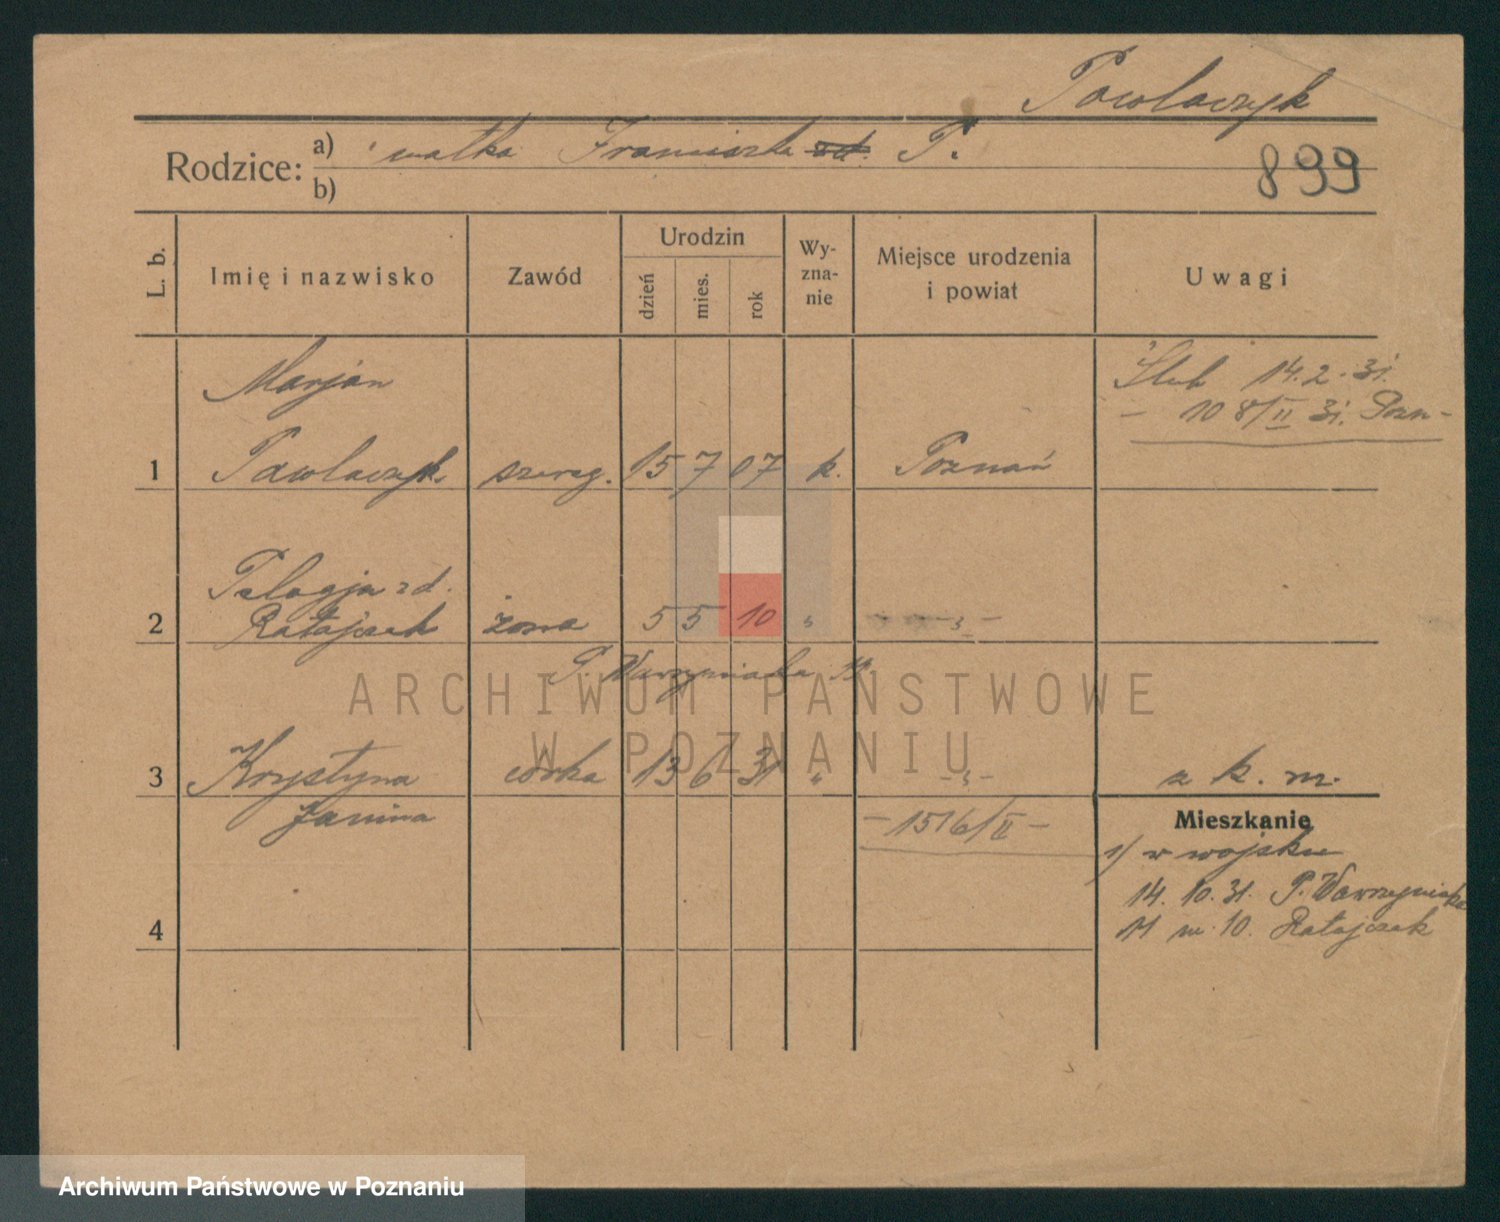 Pawlaczyk
Rodzice: a) matka Franciszka zd. P.
b)
899
L. b.
Imię i nazwisko
Zawód
Urodzin
dzień
mies.
rok
Wy-
zna-
nie
Miejsce urodzenia
i powiat
Uwagi
Ślub 14.2.31.
– 108/II 31. Pozn–
Marjan
1 Pawlaczyk szereg. 15 7 07 k. Poznań
Pelagja zd.
2 Ratajczak żona 5 5 10 " – " –
P. Wawrzyniaka
3 Krystyna córka 13 6 31 " – " – z k. m.
Janina
– 1516/II –
Mieszkanie
1/ w wojsku
14. 10. 31. P. Wawrzyniaka
11 m. 10. Ratajczak
4
ARCHIWUM PAŃSTWOWE
W POZNANIU
Archiwum Państwowe w Poznaniu